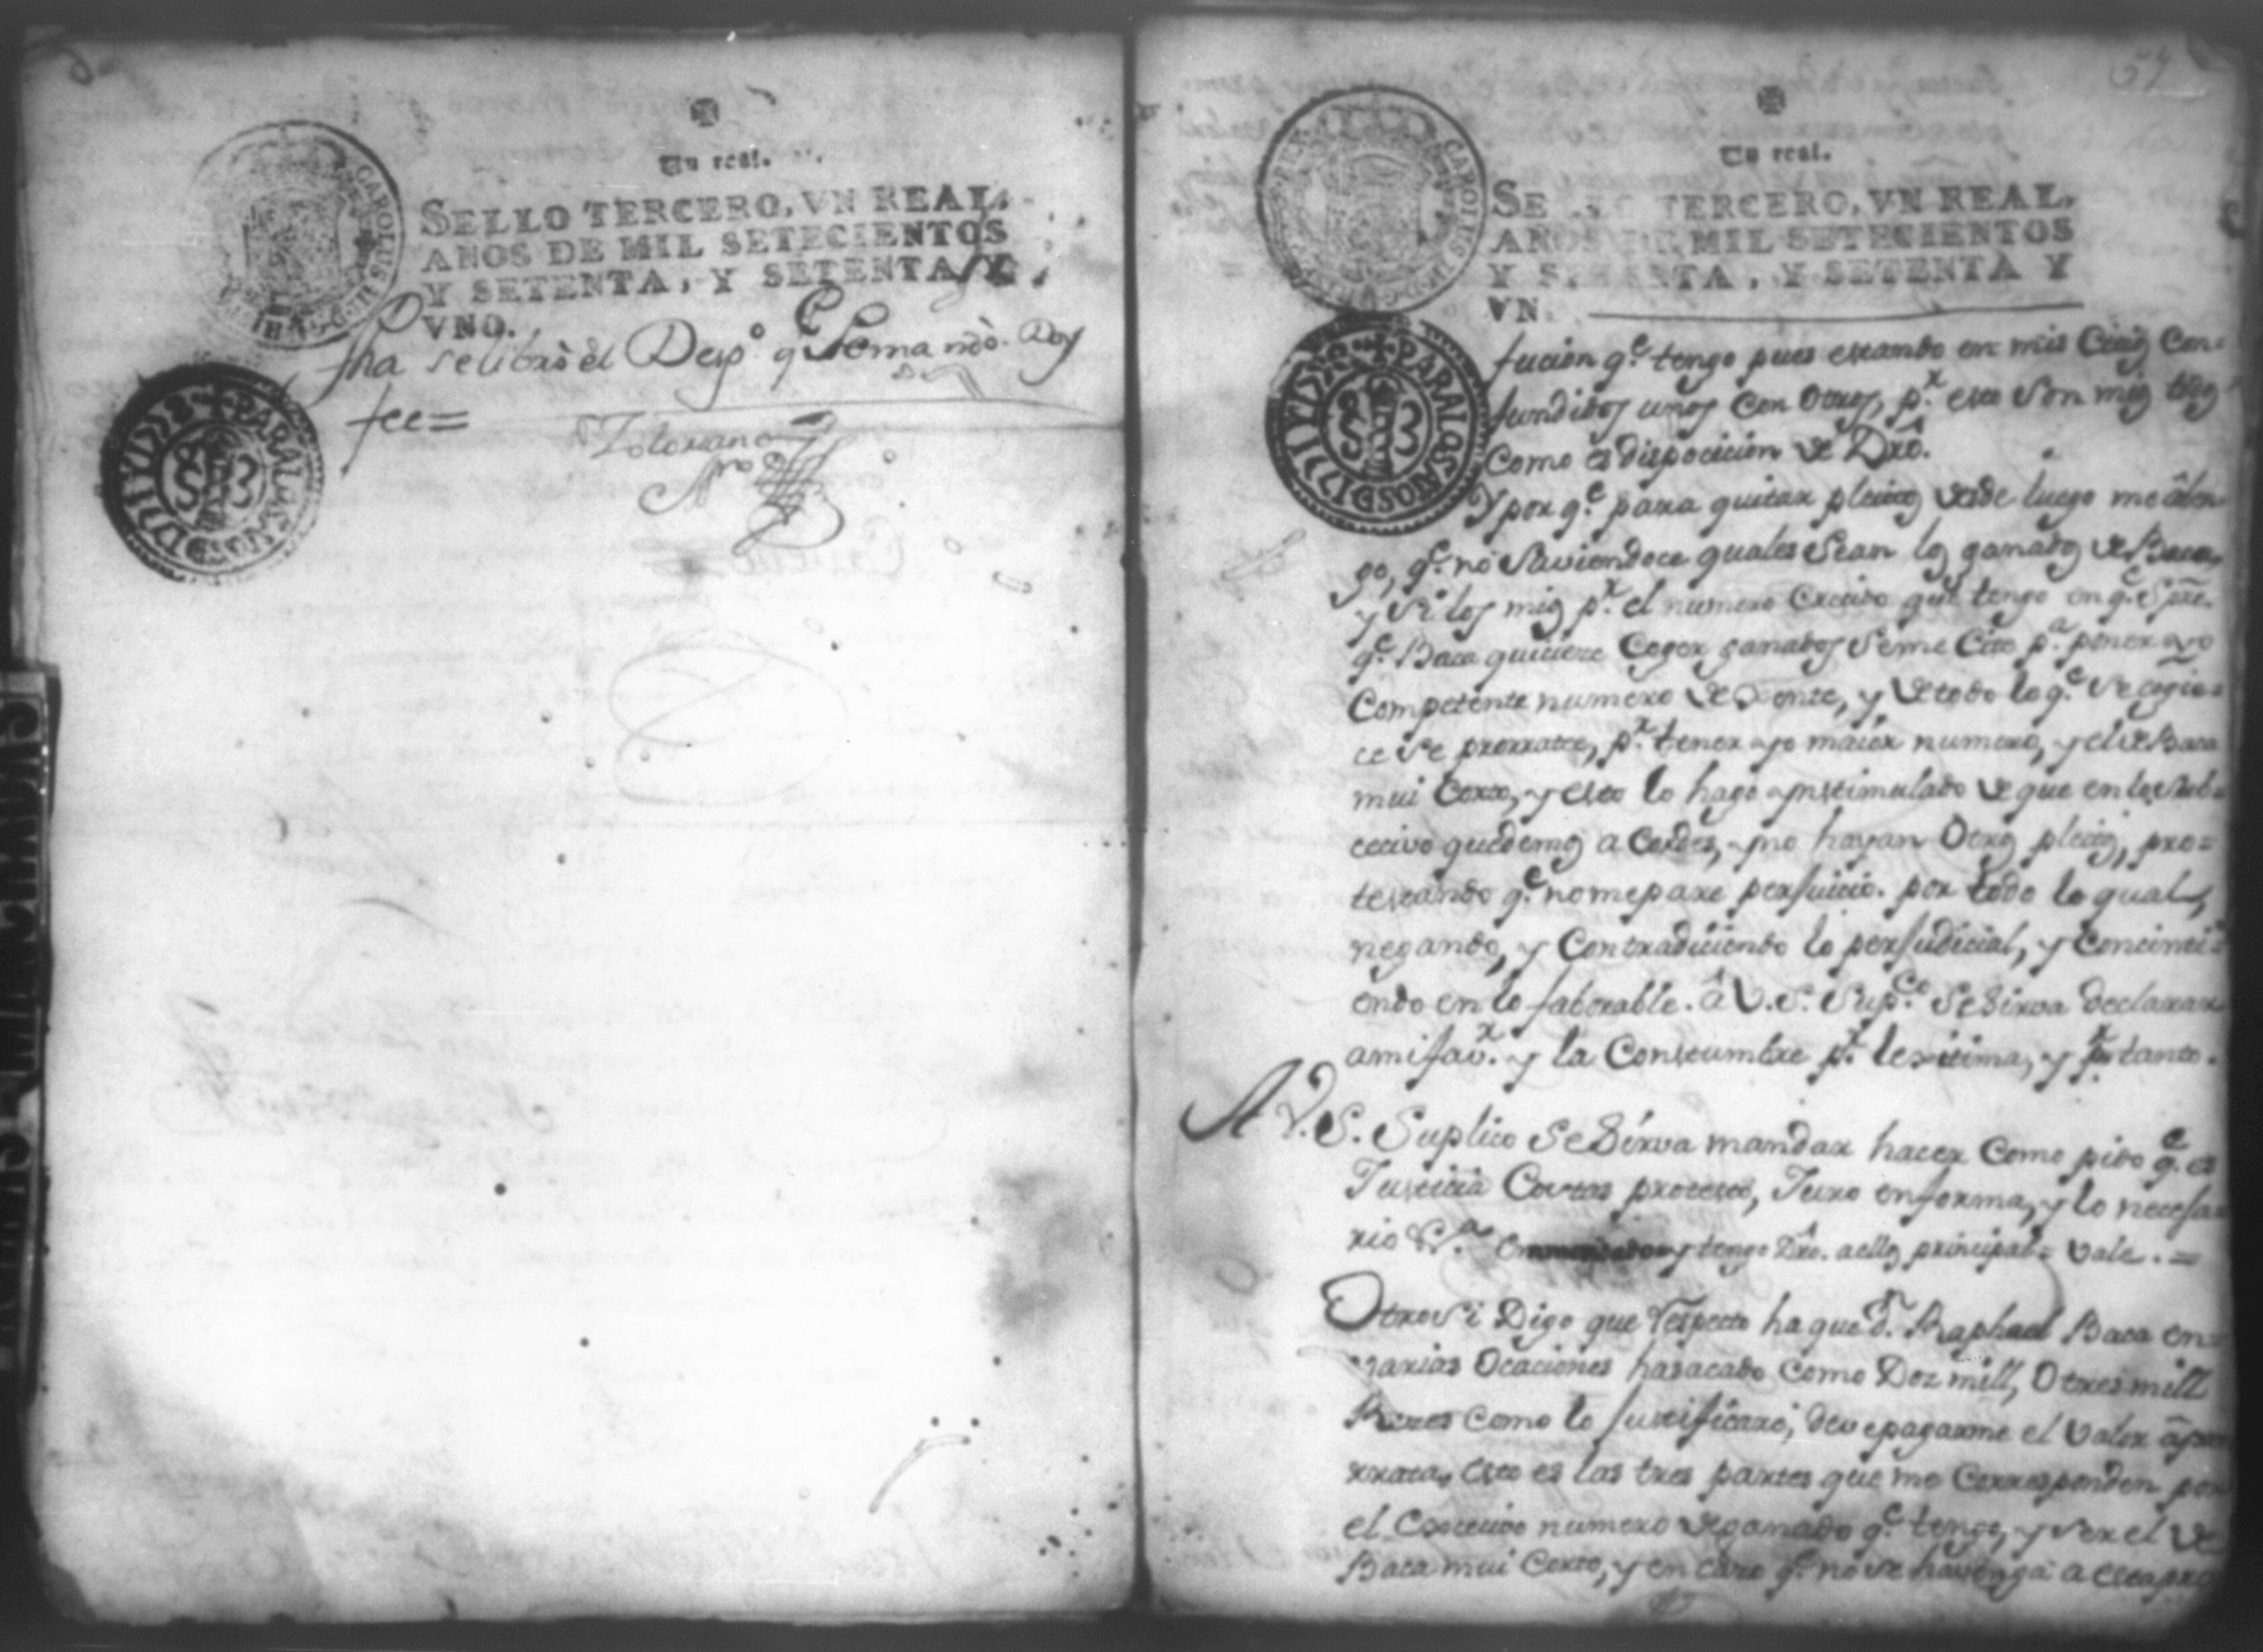 Un real.
SELLO TERCERO, VN REAL,
AÑOS DE MIL SETECIENTOS
Y SETENTA, Y SETENTA Y
VNO.
CAROLUS III
PARA LOS AÑOS DE 1772 Y 73
fha se libró el Desp.º q.e se mandò. Doy
fee=
57
Un real.
SE TERCERO, VN REAL,
AÑOS DE MIL SETECIENTOS
Y SETENTA, Y SETENTA Y
VN
CAROLUS
PARA LOS AÑOS DE 1772 Y 73
fucion q.e tengo pues estando en mis Citig Con-
fundidos unos con otros, p.r esto son mis
Como es disposicion de Dro.
Y por q.e para quitar pleitos desde luego me
go, q.e no saviendoce quales sean los ganados de Baca,
y si los mios p.r el numero Crecido que tengo en q.e Spre.
q.e Baca quiciere Coger ganados se me Cite p.a poner yo
Competente numero de Gente, y de todo lo q.e se cogie=
ce se prorratee, p.r tener yo maior numero, y el de Baca
mui Corto, y esto lo hago ynstimulado de que en lo sub
cecivo quedemos acordes, y no hayan Otros pleitos, pro=
testando q.e no me pare perjuicio. por todo lo qual,
negando, y Contradiciendo lo perjudicial, y Concinti=
endo en lo faborable. â V.S. Sup.co Se Sirva declarar
a mi fav.r y la Constumbre p.r lexitima, y p.r tanto.
A V.S. Suplico Se Sirva mandar hacer Como pido q.e es
Justicia Costas protesto, Juro en forma, y lo necesa
rio V.a y tengo Dro. a ellos principal= Vale.=
Otro si Digo que respecto ha que d.n Raphael Baca en
varias Ocaciones ha sacado Como Doz mill, O tres mill
Rezes como lo justificaré, deve pagarme el Valor
rrata, esto es las tres partes que me Corresponden por
el Crecido numero de ganado q.e tengo, y ser el de
Baca mui Corto, y en caso q.e no se havenga a esta pro